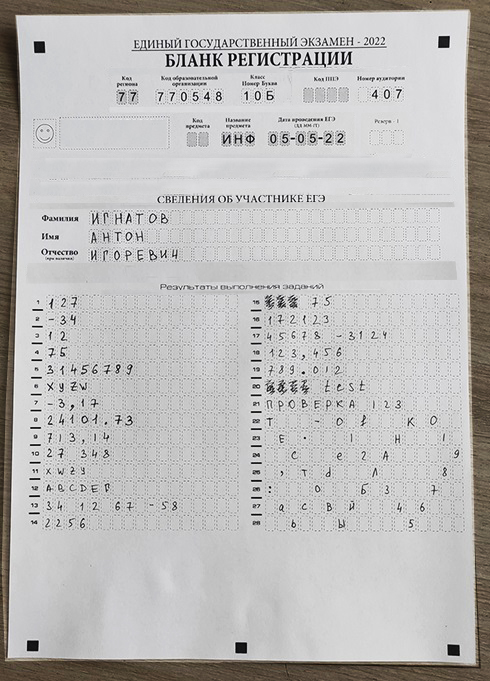 ЕДИНЫЙ ГОСУДАРСТВЕННЫЙ ЭКЗАМЕН - 2022
БЛАНК РЕГИСТРАЦИИ
Код региона Код образовательной организации Класс Номер Буква Код ППЭ Номер аудитории
77 770548 10Б 407
Код предмета Название предмета Дата проведения ЕГЭ (ДД-ММ-ГГ) Резерв - 1
ИНФ 05-05-22
СВЕДЕНИЯ ОБ УЧАСТНИКЕ ЕГЭ
Фамилия ИГНАТОВ
Имя АНТОН
Отчество ИГОРЕВИЧ
(при наличии)
Результаты выполнения заданий
1 127
2 -34
3 12
4 75
5 31456789
6 XYZW
7 -3,17
8 24101.73
9 713,14
10 27 348
11 XWZY
12 ABCDEF
13 34 12 67 -58
14 2256
15 75
16 172123
17 45678 -3124
18 123,456
19 789.012
20 test
21 ПРОВЕРКА 123
22 Т - о f К О
23 Е . I Н I
24 С е 2 А 9
25 , т d Л 8
26 : О Б 3 7
27 а с в й 4 6
28 ь ы 5